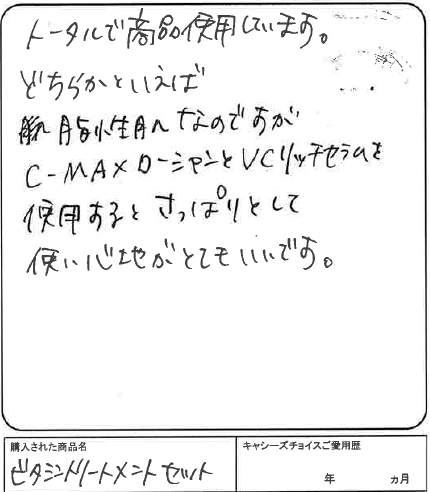 トータルで商品使用しています。
どちらかといえば
脂性肌なのですが
C-MAXローションとVCリッチセラムを
使用するとさっぱりとして
使い心地がとてもいいです。
購入された商品名
ビタミントリートメントセット
キャシーズチョイスご愛用歴
年 ヵ月